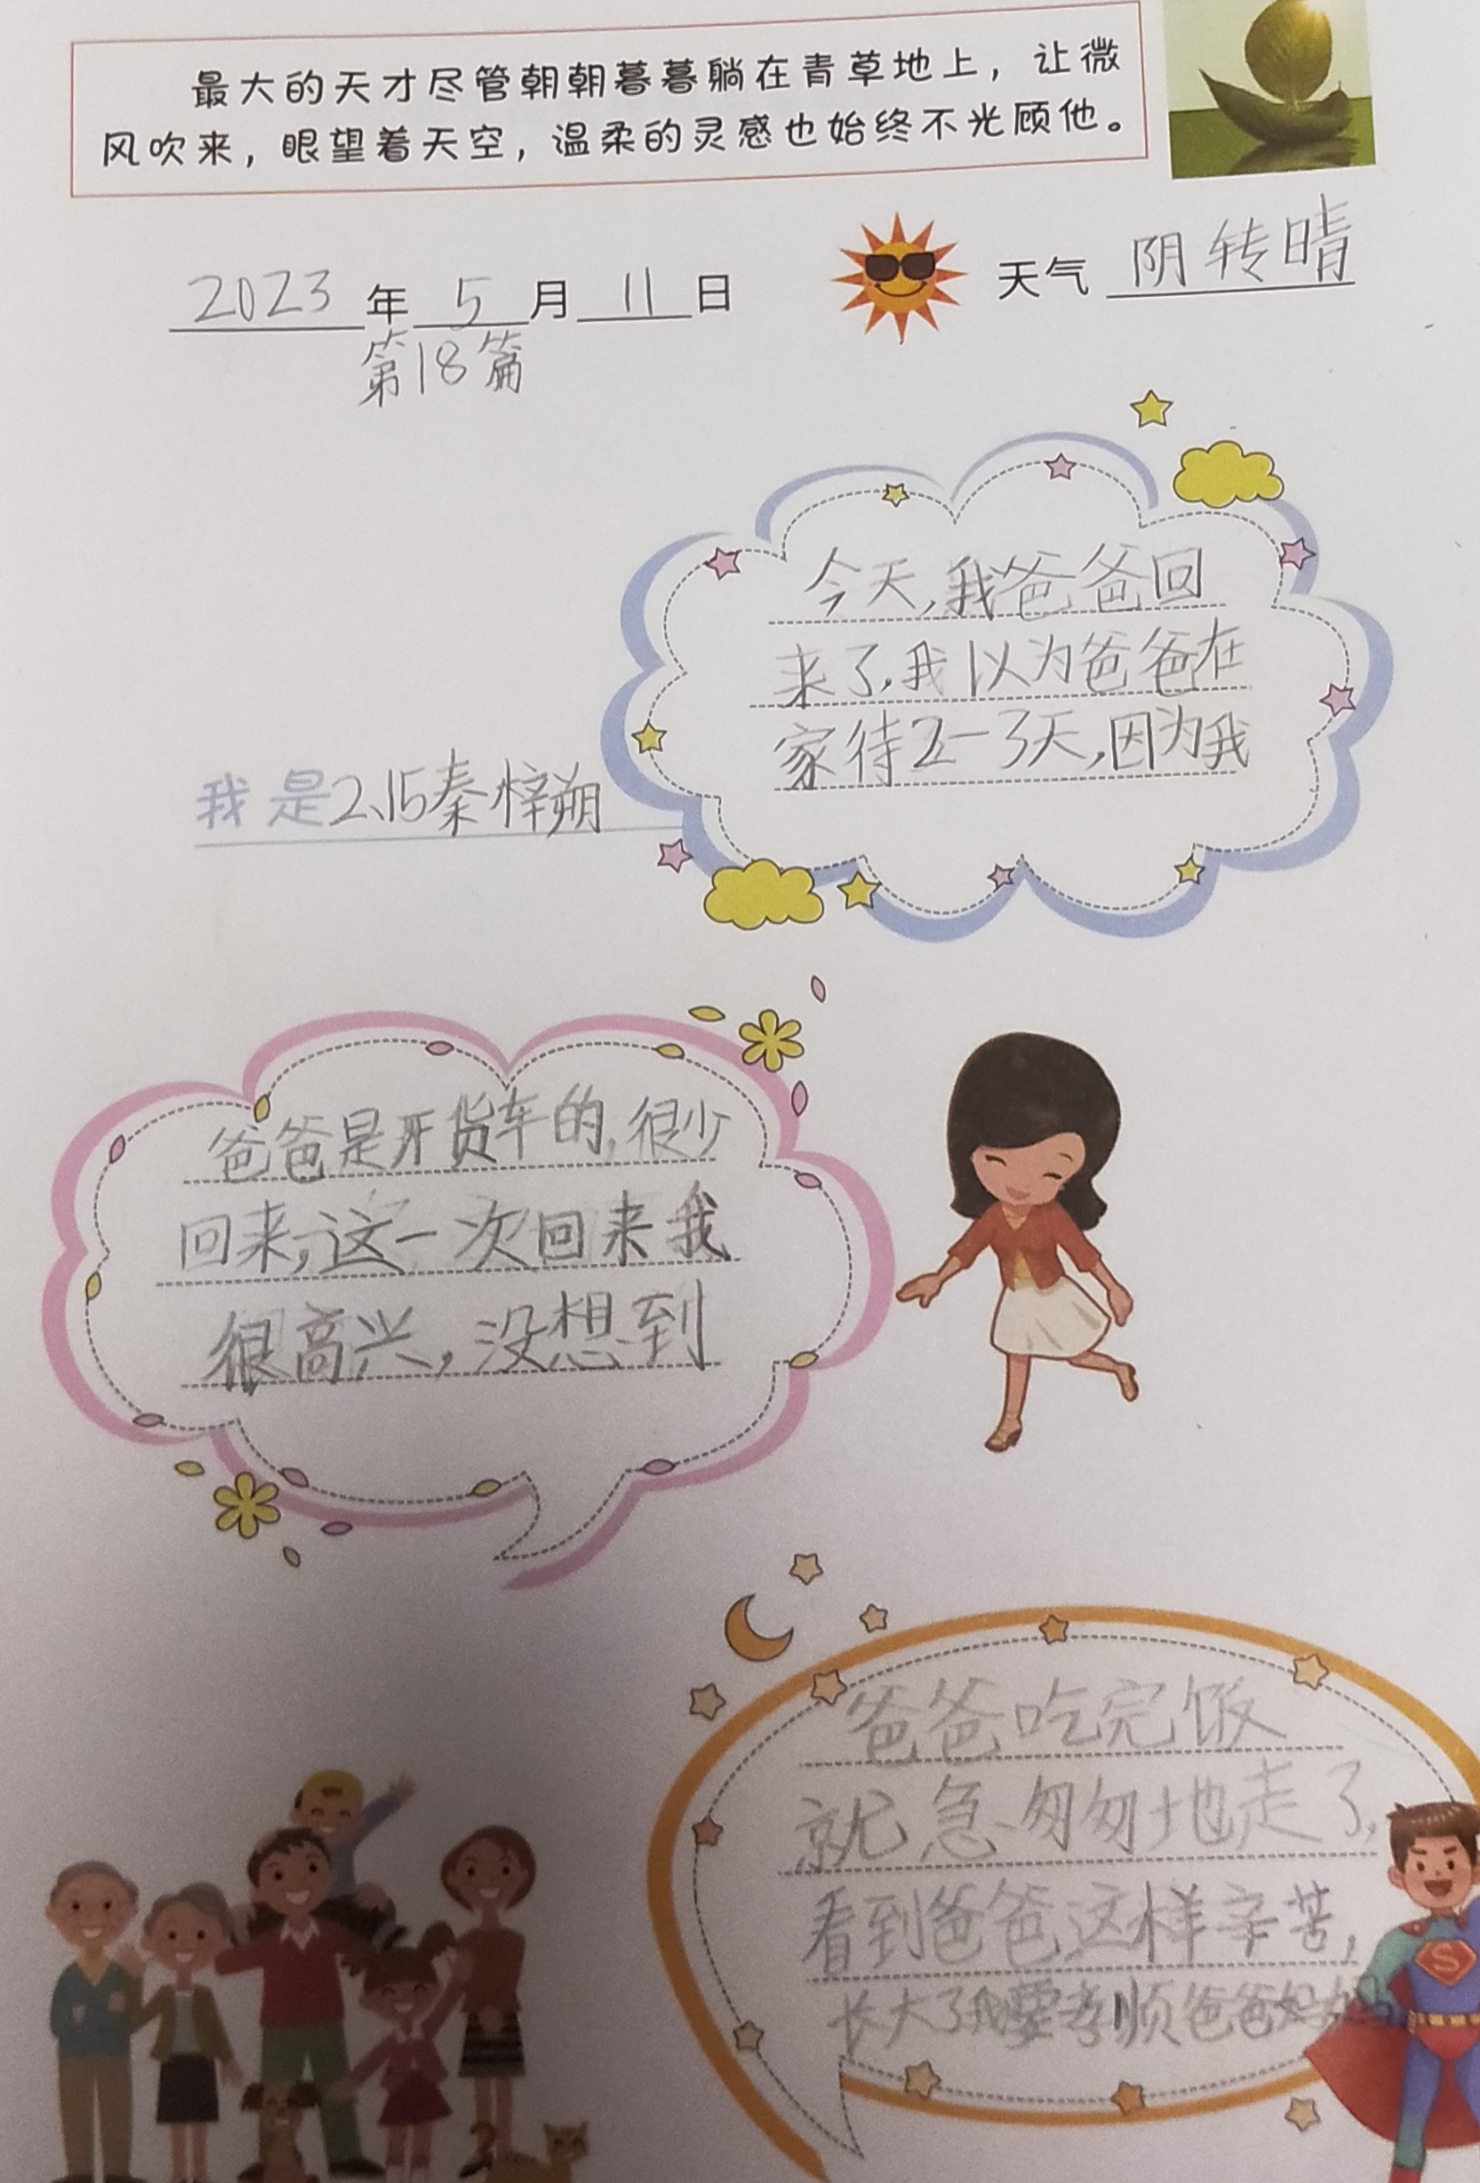 最大的天才尽管朝朝暮暮躺在青草地上，让微
风吹来，眼望着天空，温柔的灵感也始终不光顾他。
2023年5月11日 天气 阴转晴
第18篇
今天,我爸爸回
来了,我以为爸爸在
家待2-3天,因为我
我是2、15秦梓朔
爸爸是开货车的,很少
回来,这一次回来我
很高兴,没想到
爸爸吃完饭
就急匆匆地走了,
看到爸爸这样辛苦,
长大了我要孝顺爸爸妈妈
S